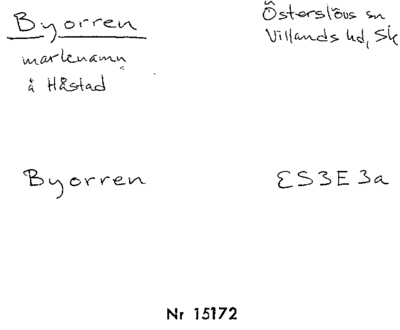 Byorren
Österslövs sn
Villands hd, Sk
marknamn
å Håstad
Byorren
ES3E3a
Nr 15172